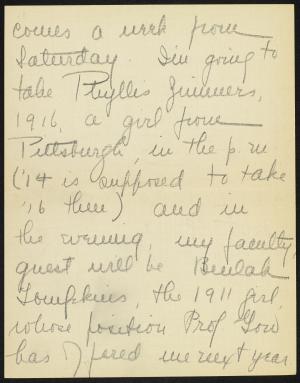 comes a week from
Saturday. I'm going to
take Phyllis Zimmers,
1916, a girl from
Pittsburgh, in the p.m
('14 is supposed to take
'16 then) and in
the evening, my faculty
guest will be Beulah
Tompkins, the 1911 girl,
whose position Prof Gow
has offered me next year